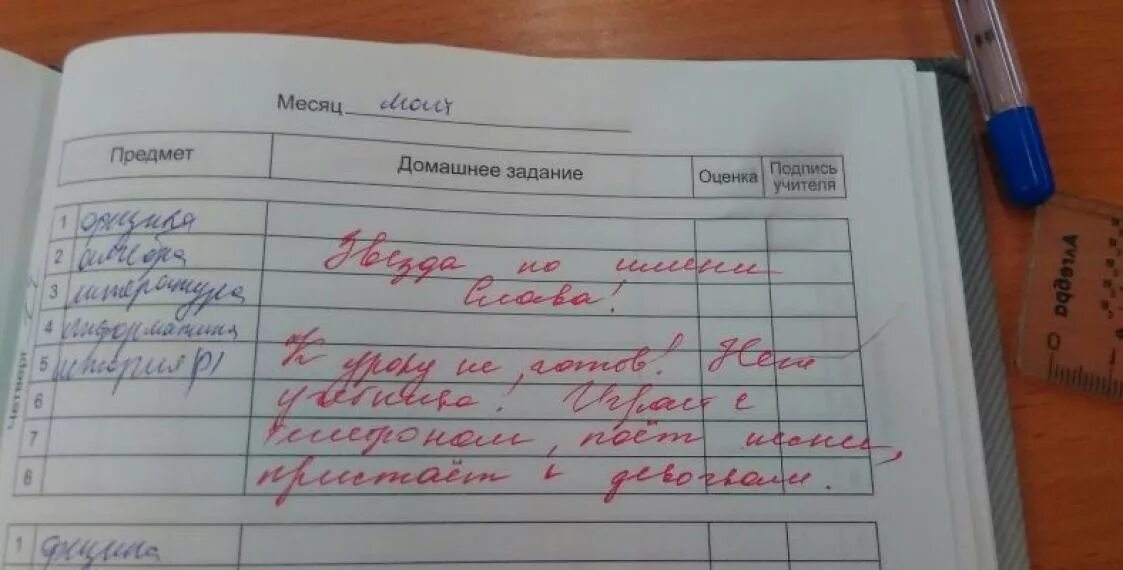 Месяц май
Предмет Домашнее задание Оценка Подпись учителя
Четверг
1 физика
2 алгебра
Звезда по имени
3 литература
Слава!
4 информатика
5 история РΙ
К уроку не готов! Нет
6 учебника! Играет с
7 телефоном, поёт песни,
8 пристаёт к девочкам.
1 физика
Алгебра
0